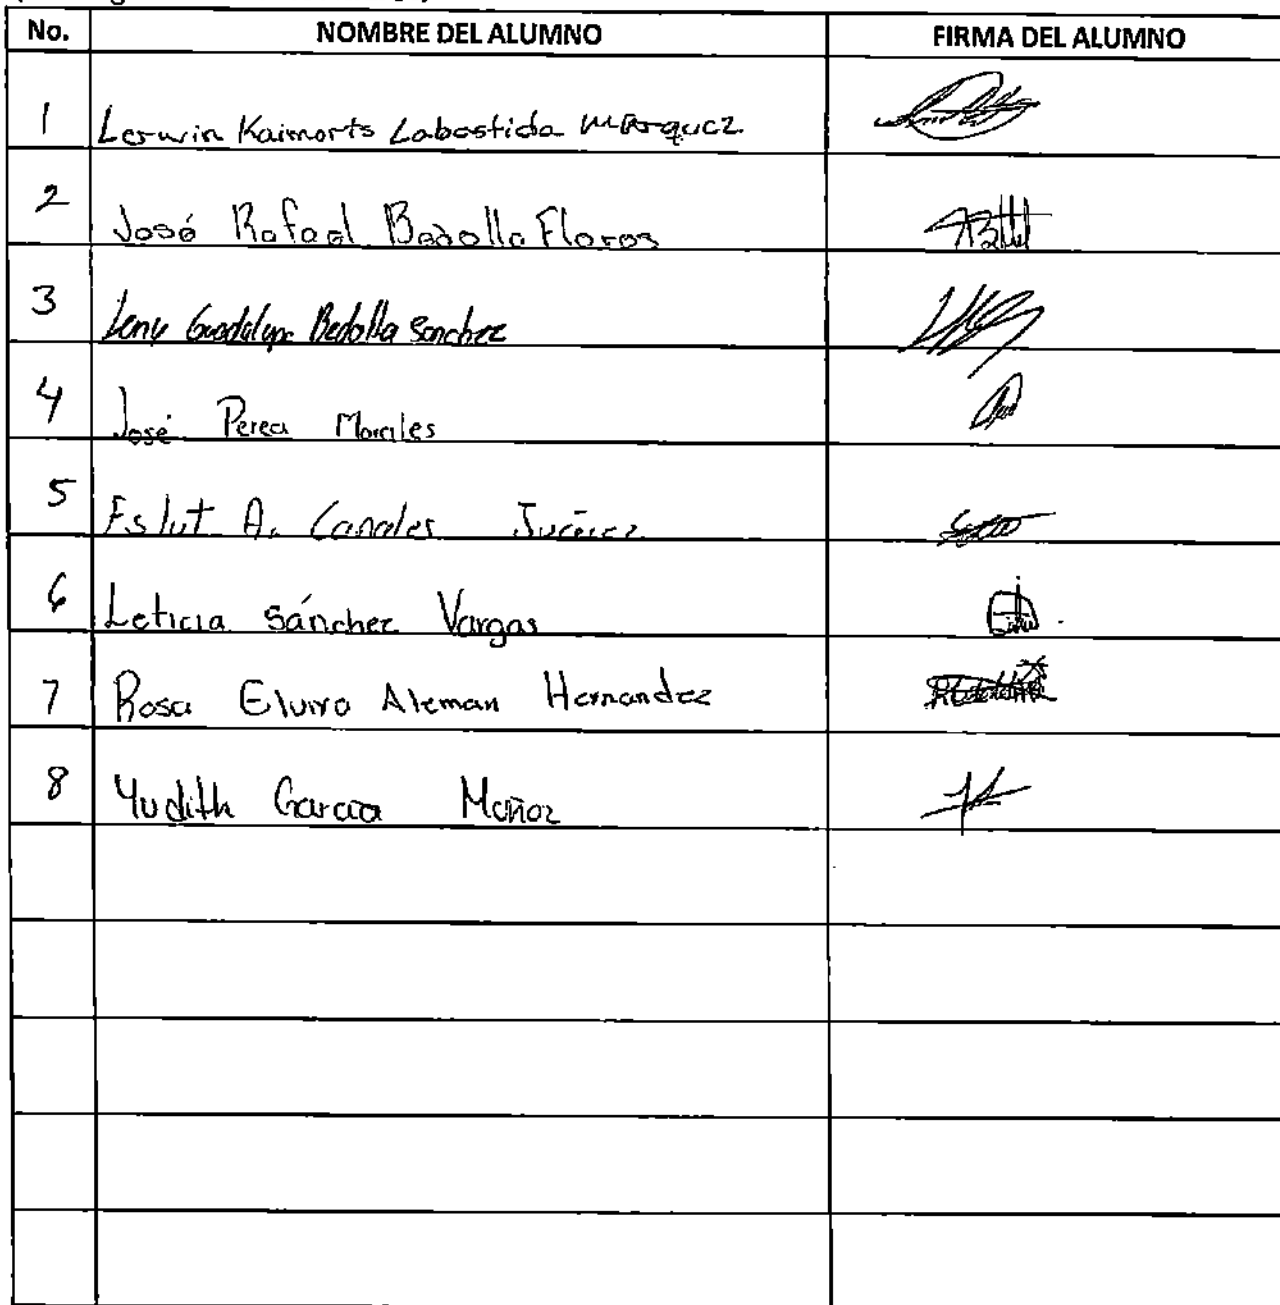 No. NOMBRE DEL ALUMNO FIRMA DEL ALUMNO
1 Lerwin Kaimorts Labastida Márquez
2 José Rafael Bedolla Flores
3 Leny Guadalupe Bedolla Sanchez
4 José Perea Morales
5 A. Canales Juárez
6 Leticia Sánchez Vargas
7 Rosa Elvira Aleman Hernandez
8 Yudith Garcia Muñoz